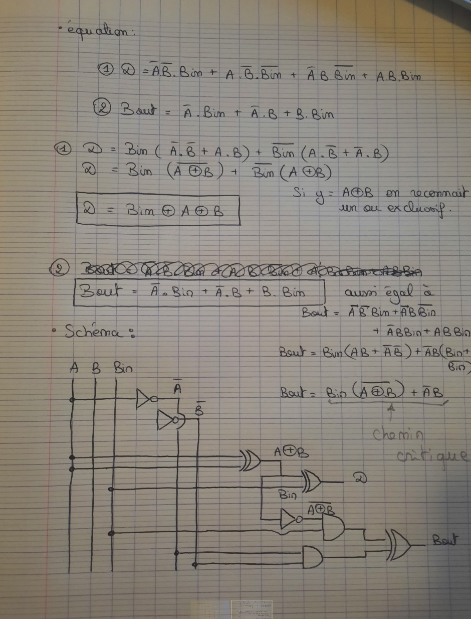 • équation:
① D = A̅B̅.Bin + A.B̅.B̅i̅n̅ + A̅B B̅i̅n̅ + AB.Bin
② Bout = A̅.Bin + A̅.B + B.Bin
① D = Bin (A̅.B̅ + A.B) + B̅i̅n̅ (A.B̅ + A̅.B)
D = Bin (A̅⊕̅B̅) + B̅i̅n̅ (A⊕B)
Si y = A⊕B on reconnait
un ou exclusif.
D = Bin ⊕ A ⊕ B
②
Bout = A̅.Bin + A̅.B + B.Bin
aussi égal à
Bout = A̅B̅Bin + A̅BB̅i̅n̅
+ A̅BBin + ABBin
• Schéma:
Bout = Bin(AB + A̅B̅) + A̅B(Bin+
B̅i̅n̅)
A B Bin A̅ B̅
Bout = Bin (A̅⊕̅B̅) + A̅B
chemin
critique
A⊕B
D
Bin
A̅⊕̅B̅
Bout